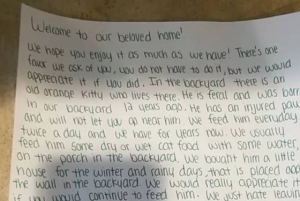 Welcome to our beloved home!
We hope you enjoy it as much as we have! There's one
favor we ask of you, you do not have to do it, but we would
appreciate it if you did. In the backyard there is an
old orange kitty who lives there. He is feral and was born
in our backyard 12 years ago. He has an injured paw
and will not let you go near him. We feed him everyday
twice a day and we have for years now. We usually
feed him some dry or wet cat food with some water,
on the porch in the backyard. We bought him a little
house for the winter and rainy days, that is placed
the wall in the backyard. We would really appreciate it
if you would continue to feed him. We just hate leaving